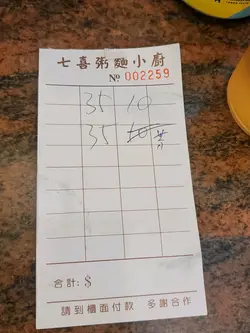 七喜粥麵小廚
No 002259
35 10
35
合計: $
請到櫃面付款 多謝合作